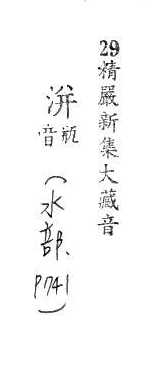 29精嚴新集大藏音
洴瓶音（水部、P741）